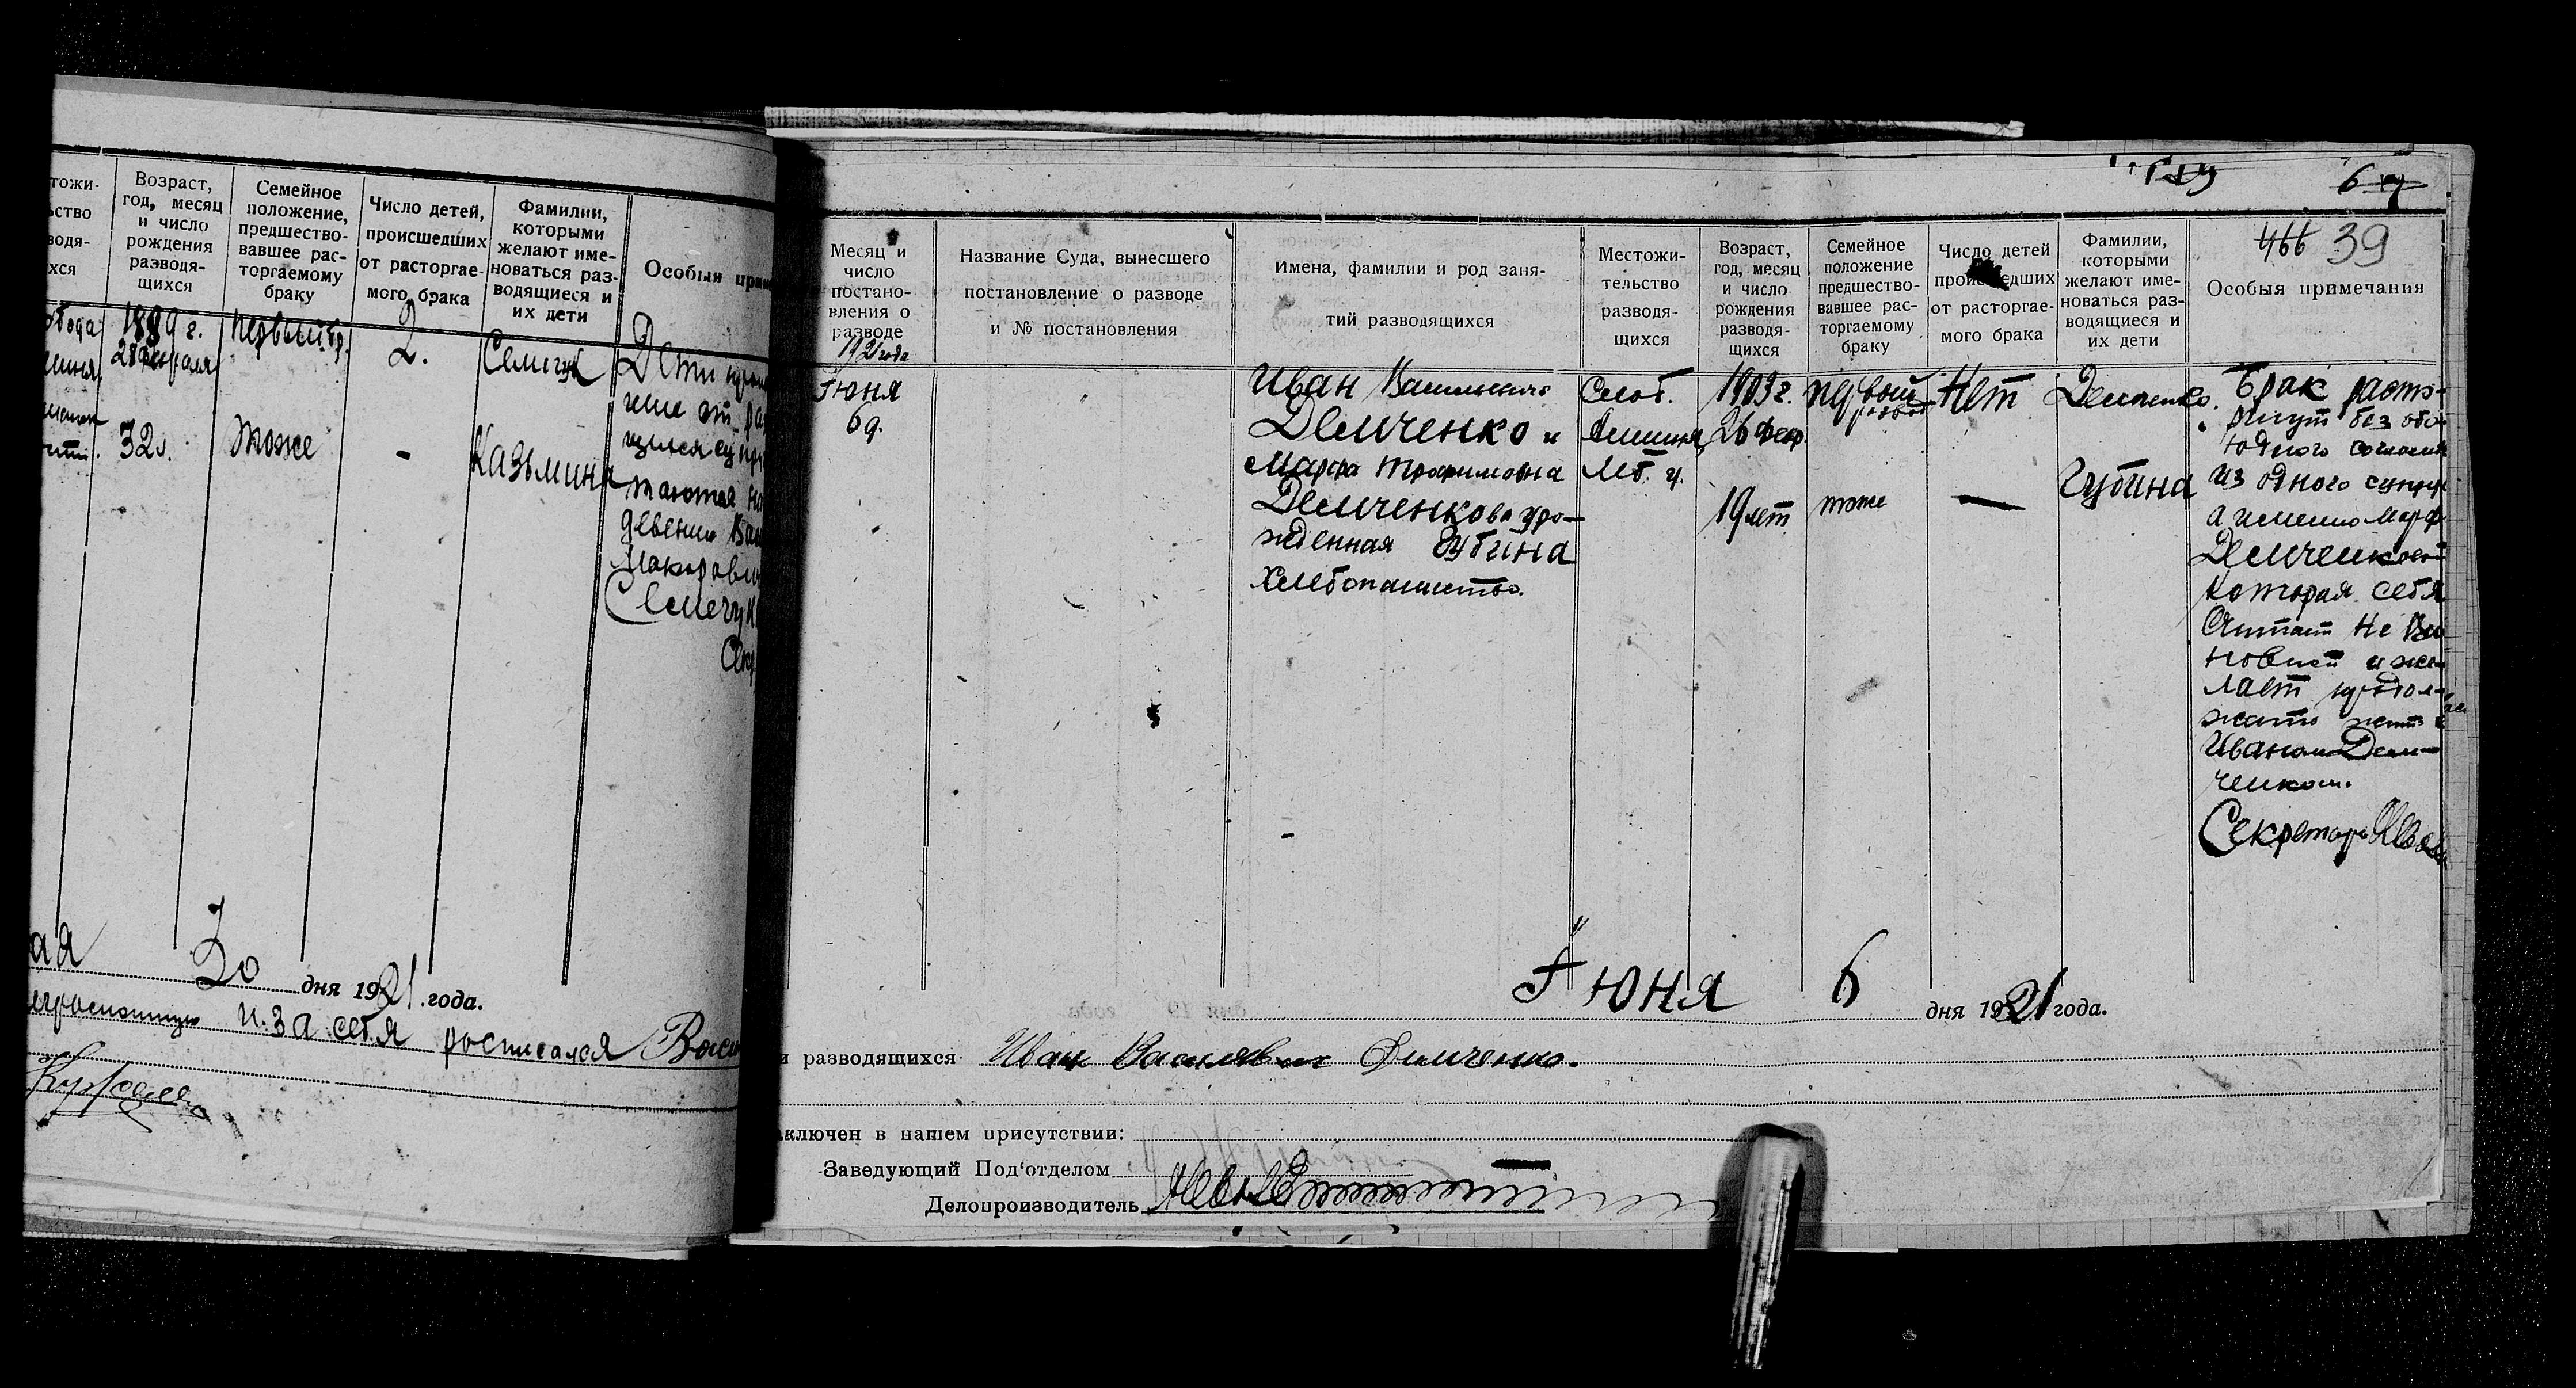 Возраст,
год, месяц
и число
рождения
разводя-
щихся
Семейное
положение,
предшество-
вавшее рас-
торгаемому
браку
Число детей,
происшедших
от расторгае-
мого брака
Фамилии,
которыми
желают име-
новаться раз-
водящиеся и
их дети
Особыя
1889 г.
2.
Дети
32 л.
тоже
-
Казьмина
Семечук
30 дня 1921 года.
и за себя росписался
39
466
Месяц и
число
постано-
вления о
разводе
1921 года
Название Суда, вынесшего
постановление о разводе
и № постановления
Имена, фамилии и род заня-
тий разводящихся
Местожи-
тельство
разводя-
щихся
Возраст,
год, месяц
и число
рождения
разводя-
щихся
Семейное
положение
предшество-
вавшее рас-
торгаемому
браку
Число детей
происшедших
от расторгае-
мого брака
Фамилии,
которыми
желают име-
новаться раз-
водящиеся и
их дети
Особыя примечания
Июня
6 д.
Иван Васильевич
Демченко и
Марфа Трофимовна
Демченкова уро-
жденная Губина
Хлебопашество.
Слоб.
1903 г.
26 февр.
19 лет
первый
развод
тоже
Нет
—
Демченко.
Губина
Брак расто-
ргнут без обо-
юдного согласия
из одного супруг
а именно Марф
Демченковой
которая себя
Считает не Ви
новной и же-
лает продол-
жать жить с
Иваном Дем-
ченком.
Секретарь
Июня 6 дня 1921 года.
и разводящихся Иван Василявич Димченко.
аключен в нашем присутствии:
Заведующий Под'отделом
Делопроизводитель